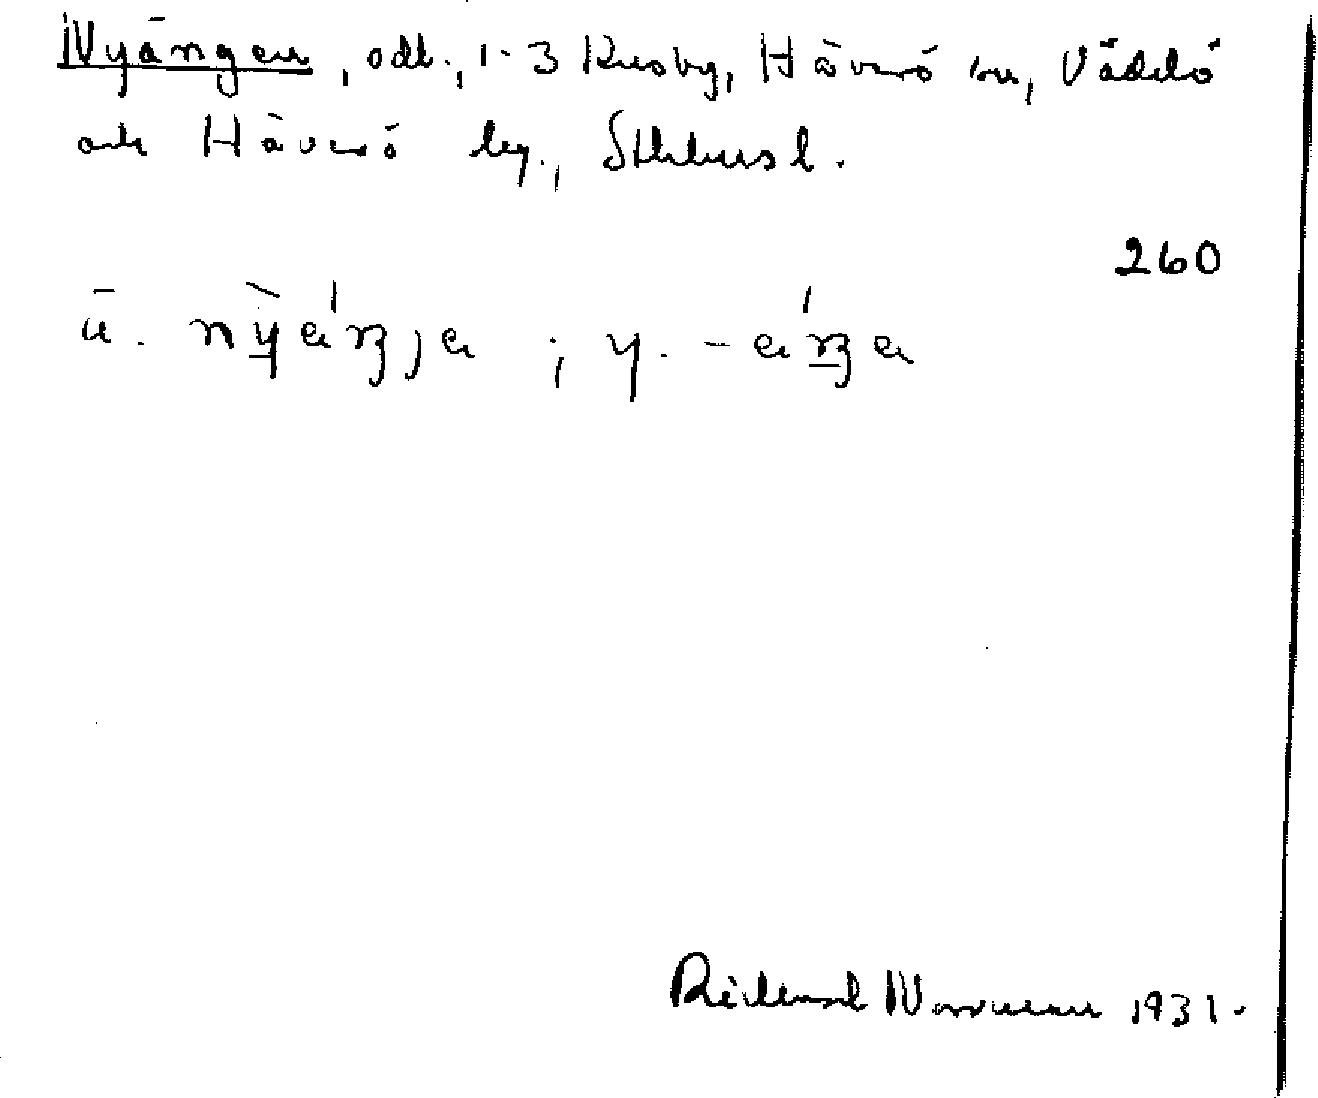 Nyängen, odl., 1-3 Kusby, Häverö sn, Väddö
och Häverö lng., Sthlms l.
260
ä. ; y. -
Rickard Norman 1931.